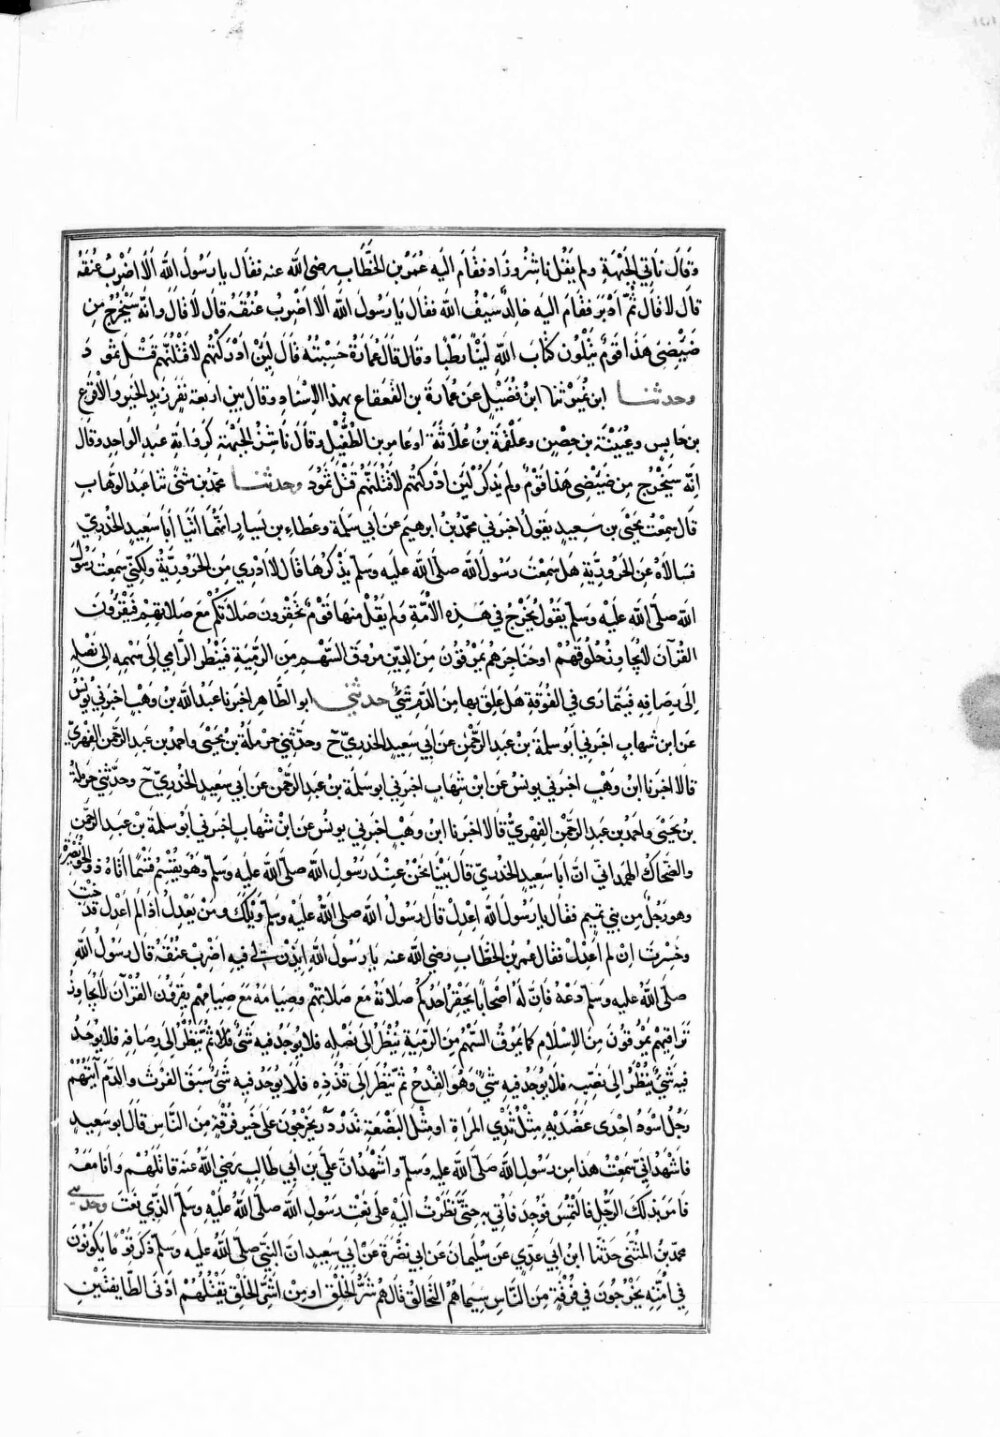 وَقَالَ نَاتِئُ الجَبْهَةِ ولم يَقُلْ نَاشِزُ وزَادَ فقَامَ اليه عُمَرُ بن الخَطَّاب رضى الله عنه فقال يا رَسُولَ الله الَا اَضْرِبُ عُنُقَهُ
قال لا قال ثُمَّ ادْبَرَ فقام اليه خالدٌ سَيْفُ الله فقال يَا رَسُولَ الله الَا اَضْرِبُ عُنُقَهُ قال لَا قالَ وانَّه سَيَخْرُجُ مِن
ضِئْضِئِ هَذَا قَوْمٌ يَتْلُونَ كِتَابَ اللهِ لَيِّنًا رَطْبا وقال قالَ عُمَارَةُ حَسِبْتُهُ قَالَ لَئِنْ ادْرَكْتُهُم لَاقْتُلَنَّهُم قَتْلَ ثَمُودَ
وحدثنا ابن نُمَيْر ثنا ابنُ فُضَيْلٍ عَن عُمَارَةَ بن القَعقاع بهذا الاِسْنادِ وقال بين اربعة نَفَر زيدِ الخَيْر وَالاَقْرَع
بن حَابِس وعُيَيْنَة بن حِصْنٍ وعَلْقَمَة بن عُلَاثَةَ او عامر بن الطُّفَيْلِ وقَالَ نَاشِزُ الجَبْهَةِ كرواية عبدِ الواحِدِ وقالَ
انّه سَيَخْرُجُ مِن ضِئْضِئِ هَذا قَوْمٌ ولم يَذكُرْ لَئِنْ ادْرَكْتُهُم لَاقْتُلَنَّهُم قَتْلَ ثَمُودَ وحدثنا محمّدُ بن مُثَنَّى ثنا عبدُ الوَهَّاب
قَالَ سمِعْتُ يَحْيَى بن سَعِيدٍ يَقولُ اخبَرَني محمّدُ بْنُ ابرهيم عَن أبي سَلَمَة وعَطَاءِ بن يَسَارٍ انَّهُمَا اَتَيَا اَبَا سَعِيدٍ الخُدْرِيَّ
فسَالَاهُ عَنِ الحَرُورِيَّةِ هَل سَمِعْتَ رَسُولَ الله صلَّى الله عليه وَسلم يَذْكُرُهَا قَال لَا ادْرِي مِنَ الحَرُورِيَّةُ ولكِنّي سَمِعتُ رَسُولَ
الله صلَّى الله عَلَيْهِ وَسلم يَقول يَخْرُجُ في هَذِهِ الاُمَّةِ وَلم يَقُلْ منها قَوْمٌ تَحقِرُونَ صَلَاتَكُمْ مَعَ صَلَاتِهِمْ فَيَقْرَؤُنَ
القُرْآنَ لَا يُجَاوِزُ حُلُوقَهُمْ اَوحَنَاجِرَهُم يَمْرُقُونَ مِنَ الدِّينِ مُرُوقَ السَّهْمِ مِنَ الرَّمِيَّةِ فَيَنْظُرُ الرَّامِي اِلَى سَهْمِهِ الى نَصْلِهِ
اِلَى رِصَافِهِ فَيَتَمارَى في الفُوقَةِ هَل عَلِقَ بها مِنَ الدَّمِ شَيْءٌ حدثني ابو الطَّاهِر اخبرنا عَبدُ الله بْن وَهْبٍ اخبرني يونُسُ
عَن ابن شهابٍ اخبَرَني ابُو سلمةَ بن عَبدِ الرَّحْمنِ عَن اَبي سَعِيدٍ الخدريّ ح وحدَّثني حَرمَلةُ بْنُ يَحْيَى واحمدُ بن عبدِ الرَّحمنِ الفِهْرِيُّ
قالا اخبَرَنا ابْن وَهْبٍ اخبَرَني يونُسُ عَن ابن شِهَابٍ اخبَرَني ابو سَلَمَة بن عَبدِ الرَّحمنِ عَن ابي سَعِيدٍ الخُدْرِيّ ح وحدَّثني حَرملةُ
بْن يَحْيَى واحمدُ بن عبدِ الرَّحمنِ الفِهْرِيُّ قالا اخبَرَنا ابن وَهْبٍ اخبرَني يونُسُ عَن ابْن شهابٍ اخبَرَني ابُو سلمةَ بن عبدِ الرَّحمَنِ
والضَّحاكُ الهَمداني انَّ اَبَا سَعِيدٍ الخُدْرِيّ قال بَيْنَا نَحْنُ عِنْدَ رَسُولِ الله صلَّى الله عليه وسلّم وَهُوَ يَقْسِمُ قَسْمًا اَتَاهُ ذو الخُوَيْصِرَةِ
وهو رَجُلٌ مِن بني تميم فقَال يا رَسُولَ الله اعْدِلْ قال رَسُولُ الله صلى الله عَليْه وسلّم وَيْلَكَ ومَنْ يَعْدِلُ اذَا لم اَعْدِل قد خِبْتَ
وخَسِرْتَ اِنْ لم اَعدِلْ فقال عُمرُ بن الخطَّابِ رضي الله عنه يا رَسُولَ اللهِ ايذَنْ لي فيه اَضْرِبْ عُنُقَهُ قال رَسُولُ اللهِ
صلّى الله عليه وسلّم دَعْهُ فَاِنَّ لَهُ اَصْحَابًا يَحْقِرُ اَحدُكُم صَلاتَهُ مَعَ صَلَاتِهِمْ وصِيَامَهُ مَعَ صِيَامِهِمْ يَقْرَؤُنَ القُرْآنَ لَا يُجَاوِزُ
تَرَاقِيَهُمْ يَمْرُقُونَ مِنَ الاِسْلَامِ كَمَا يَمْرُقُ السَّهْمُ مِنَ الرَّمِيَّةِ يُنْظَرُ اِلَى نَصْلِهِ فلا يُوجَدُ فيه شَيْءٌ ثُمَّ يُنْظَرُ اِلَى رِصَافِهِ فلا يُوجَدُ
فيهِ شَيْءٌ يُنْظَرُ اِلَى نَضِيِّهِ فلا يُوجَدُ فيهِ شَيْءٌ وَهُوَ القِدْحُ ثمَّ يُنْظَرُ اِلَى قُذَذِهِ فَلَا يُوجَدُ فيهِ شَيْءٌ سَبَقَ الفَرْثَ والدَّمَ آيَتُهُمْ
رَجُلٌ اسْوَدُ اِحْدَى عَضُدَيْهِ مِثْلُ ثَدْيِ المَرأةِ او مِثْلُ البَضْعَةِ تَدَرْدَرُ يَخْرُجُونَ عَلَى خَيرِ فِرْقَةٍ مِنَ النَّاسِ قَالَ ابو سَعِيدٍ
فاشْهَدُ انِّي سَمِعْتُ هَذا مِن رَسُولِ الله صَلّى الله عليه وسلّم واَشْهَدُ انَّ عَلِيَّ بن ابي طالِبٍ رَضِيَ اللهُ عنه قاتَلَهُمْ وانَا مَعَهُ
فاَمَرَ بذلكَ الرَّجُلِ فَالتُمِسَ فَوُجِدَ فاُتِيَ بهِ حتَّى نَظَرْتُ الَيْهِ عَلَى نَعْتِ رَسُولِ الله صَلّى اللهُ عَليْهِ وسلّم الَّذِي نَعَتَ وحدثني
محمّد بنُ المُثَنَّى حَدَّثنا ابن ابي عَدِيٍّ عَن سُلَيمانَ عَن ابي نَضْرَةَ عَنْ ابي سَعِيدٍ انَّ النبيّ صلَّى الله عليه وسلّم ذكَرَ قَوْمًا يكُونُونَ
في اُمَّتِهِ يَخْرُجُونَ في فُرْقَةٍ مِنَ النَّاسِ سِيمَاهُمْ التَّحَالُق قَالَ هُمْ شَرُّ الخَلْقِ اوْ مِنْ اَشَرِّ الخَلْقِ يَقْتُلُهُمْ ادْنَى الطَّايِفَتَيْنِ